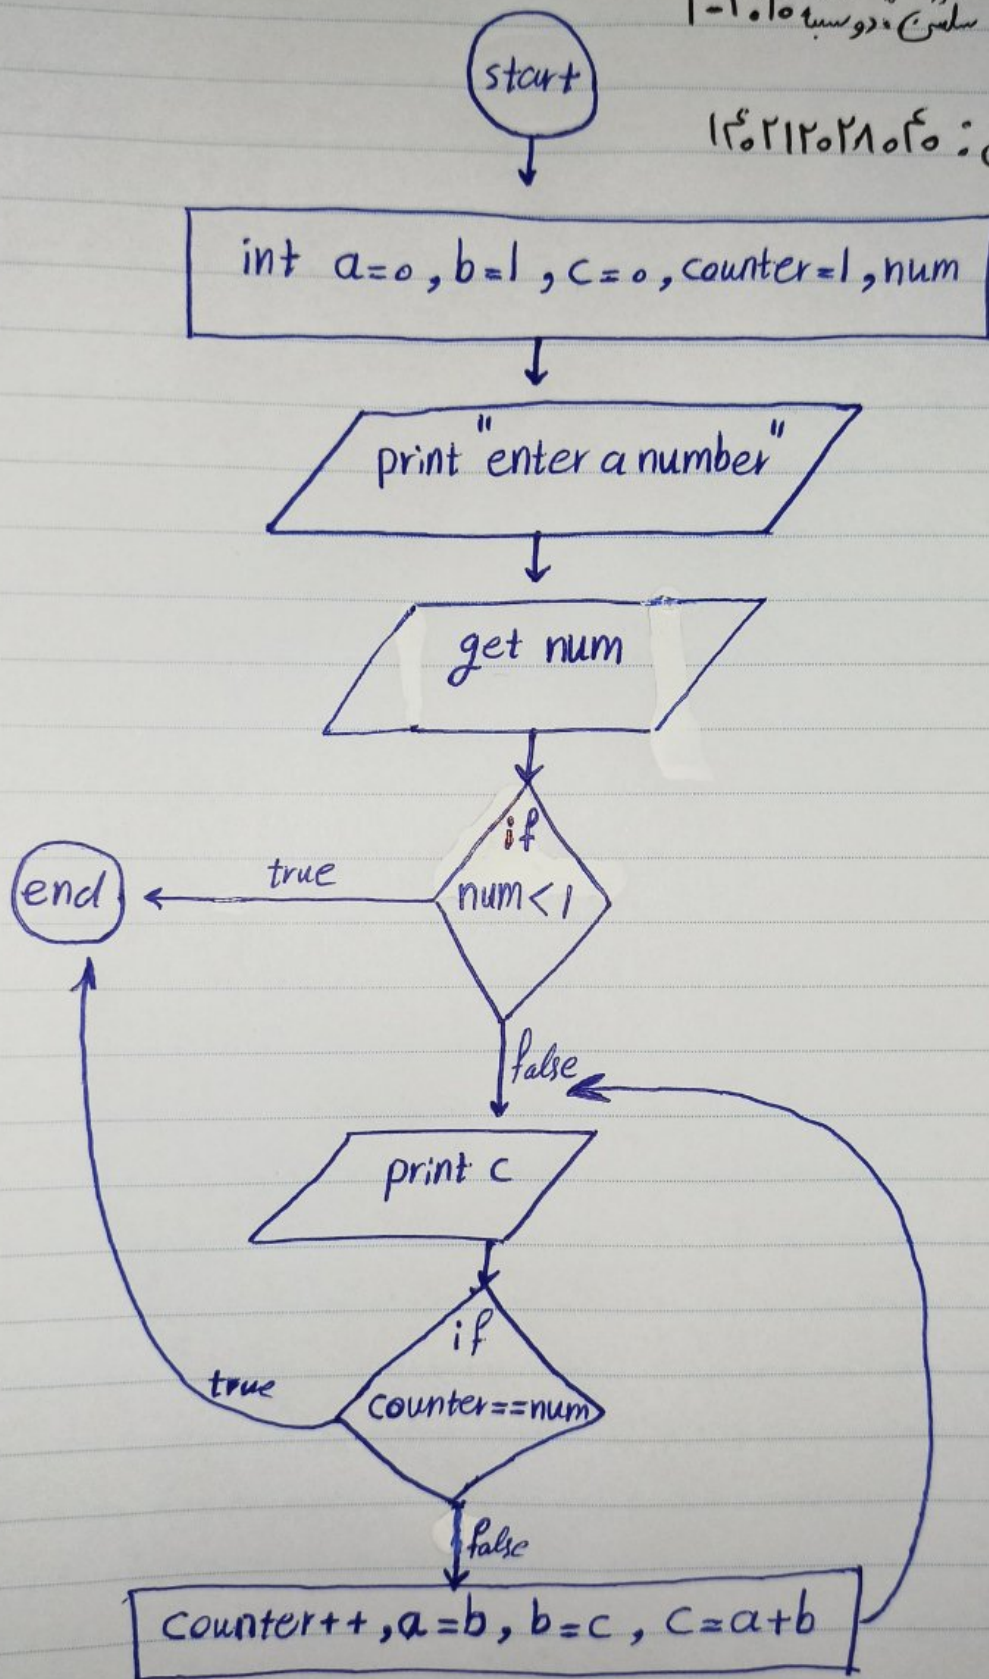 start
۱۴۰۲۱۲۰۲۸۰۴۰ :
int a=0, b=1, c=0, counter=1, num
print "enter a number"
get num
if
num<1
true
end
false
print c
if
counter==num
true
false
counter++, a=b, b=c, c=a+b